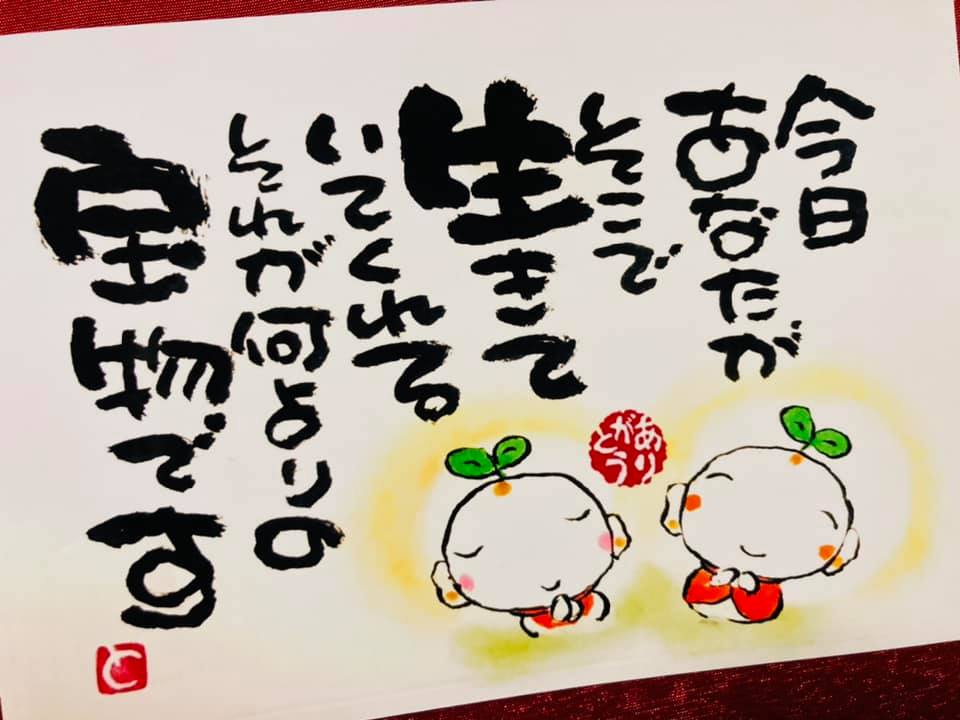 今日
あなたが
そこで
生きて
いてくれる
それが何よりの
宝物です
ありがとう
と